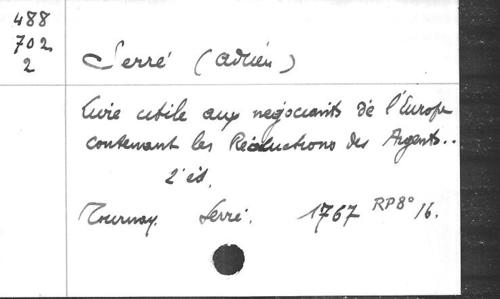 488
702
2
Serré (Adrien)
utile aux négociants de l'Europe
contenant les Réductions des Argents..
2e éd.
Tournay. Serré. 1767 RP8° 16.